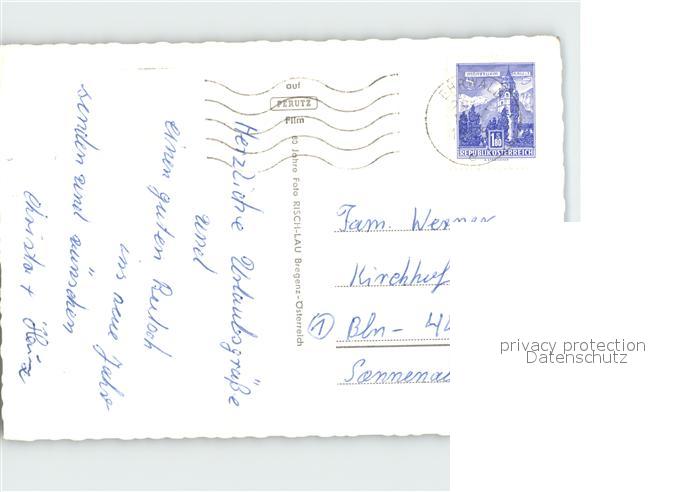 Herzliche Urlaubsgrüße
und
einen guten Rutsch
ins neue Jahr
senden und wünschen
Christa + Heinz
auf
PERUTZ
Film
60 Jahre Foto RISCH-LAU Bregenz-Österreich
1.80
REPUBLIK ÖSTERREICH
Fam. Werner
Kirchhof
① Bln- 44
Sonnena
privacy protection
Datenschutz